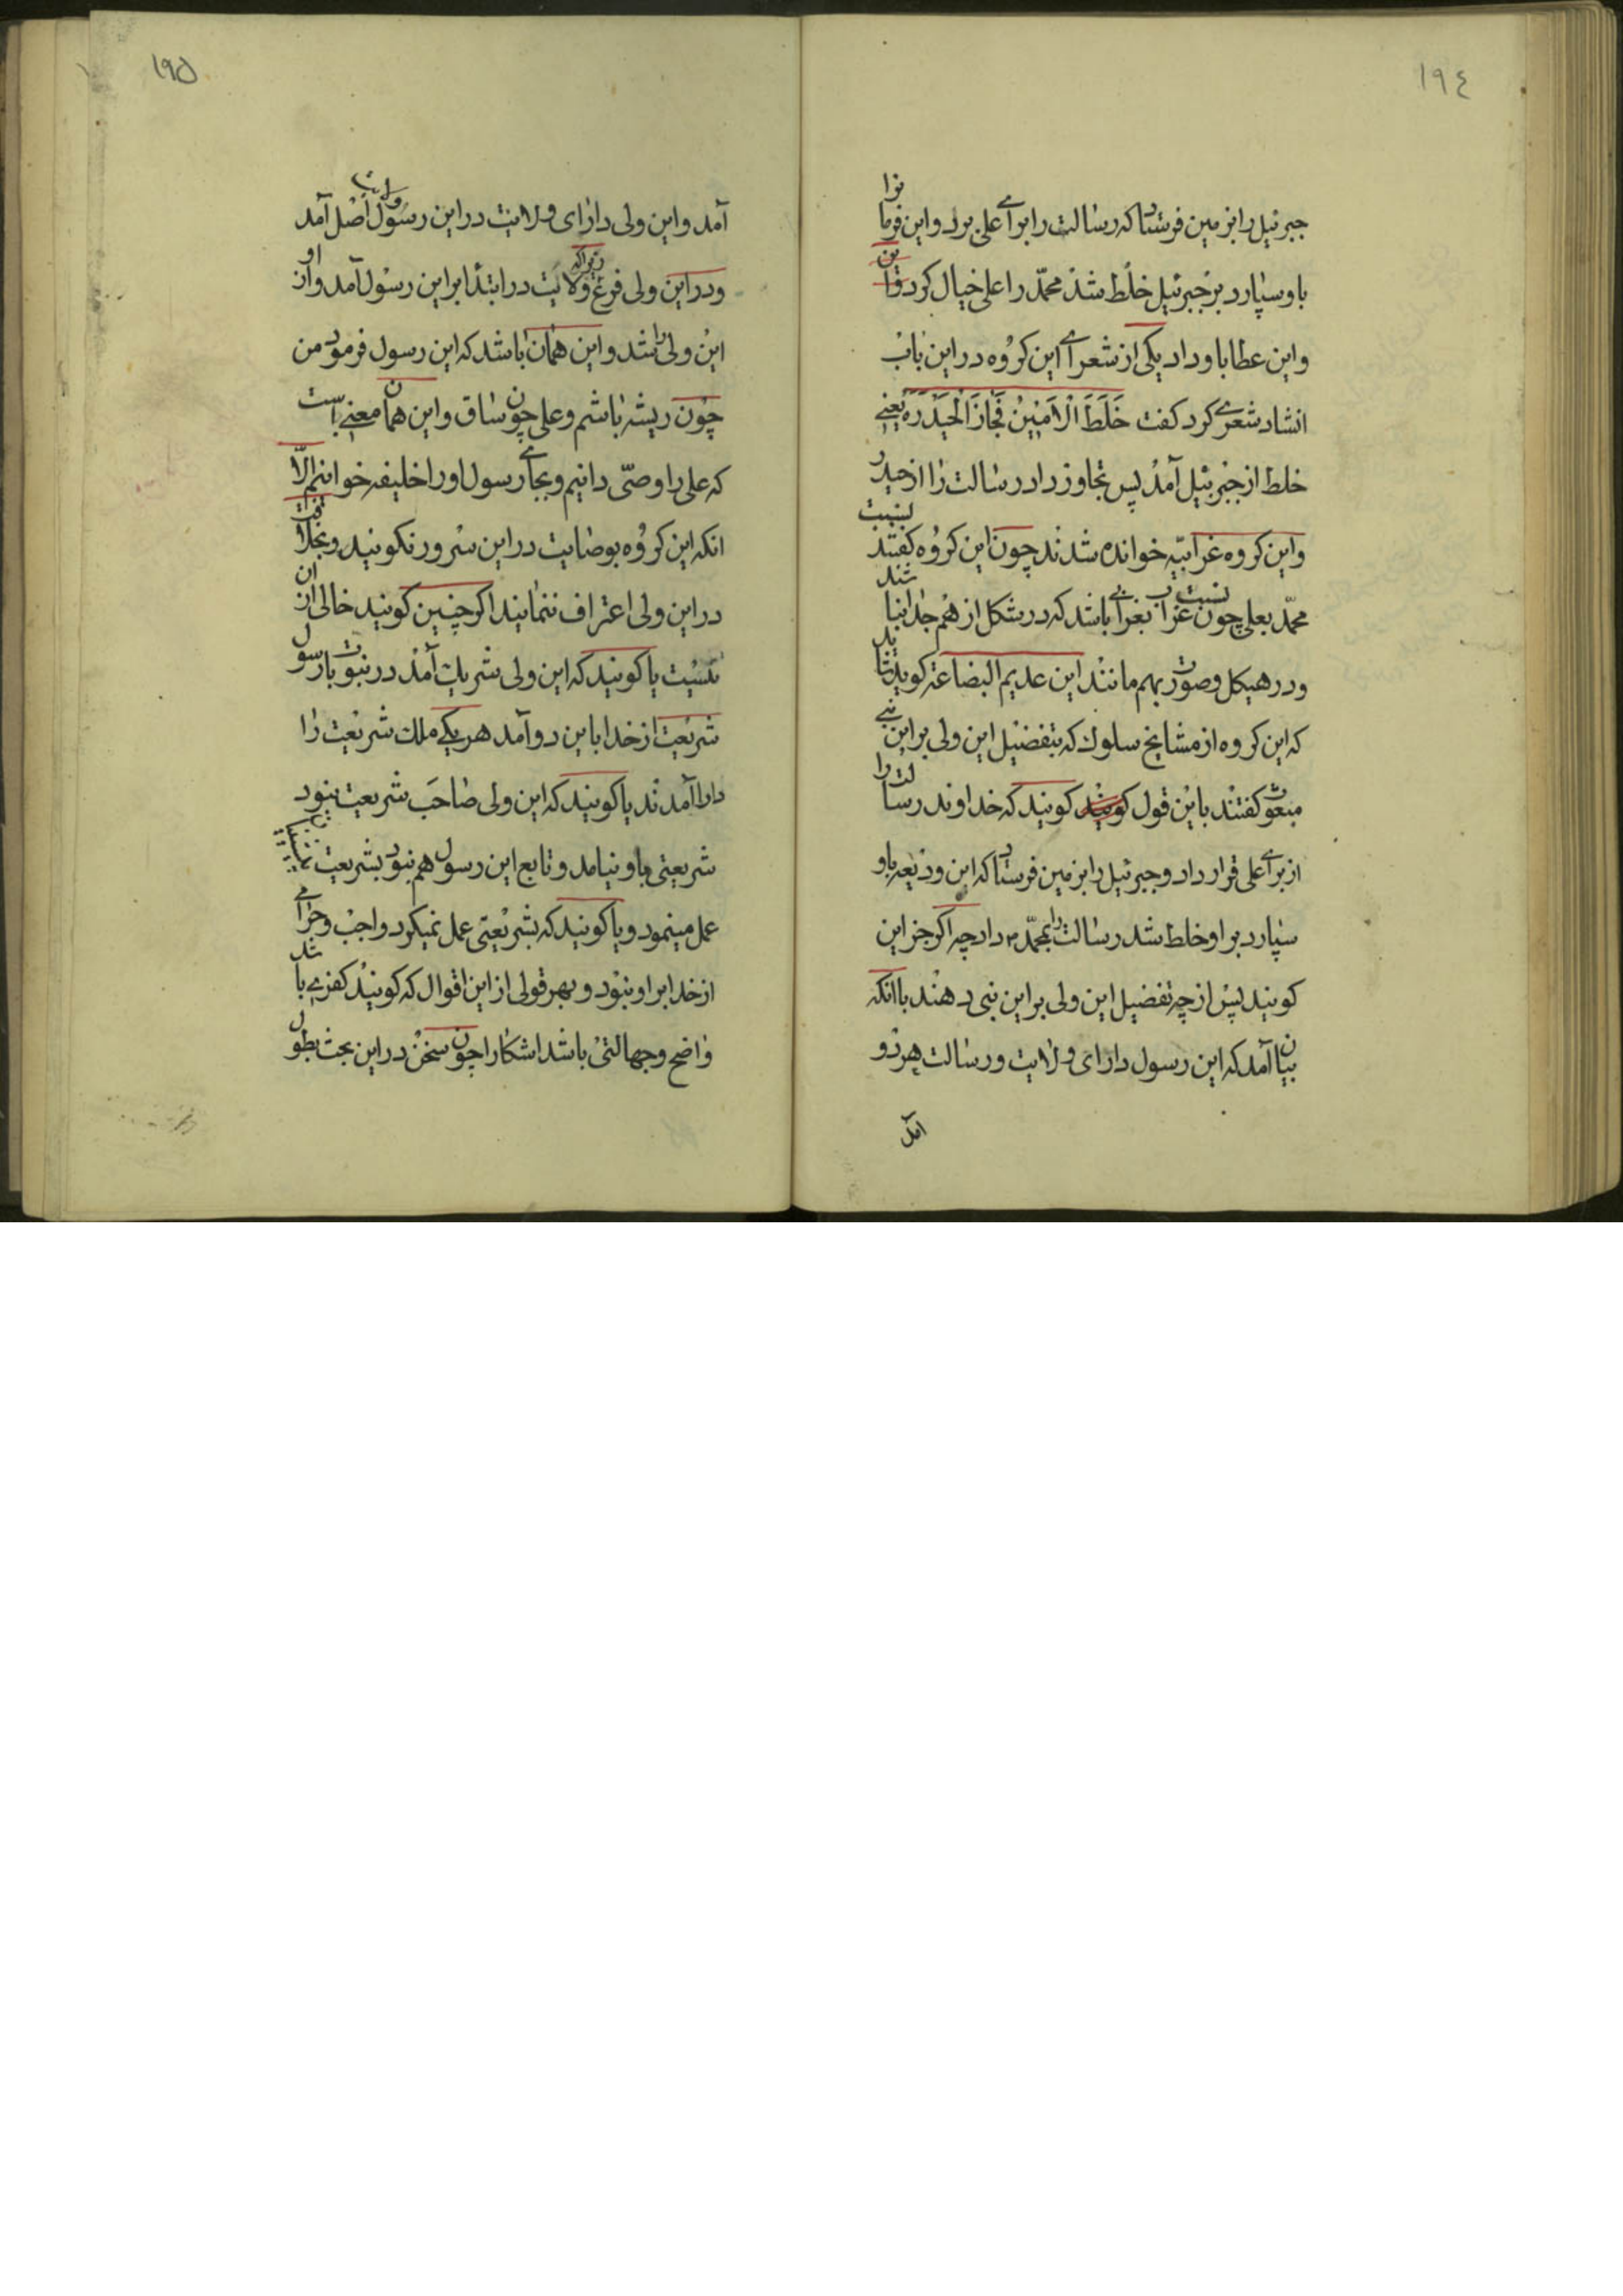 ١٩٤
جبرئیل را بزمین فرستاد که رسالت را برای علی برد و این فرما نرا
باو سپارد بر جبرئیل خلط شد محمّد را علی خیال کرد
و این عطا باو داد یکی از شعرای این کروه در این باب
انشاد شعری کرد کفت خَلَطَ الْاَمَیْنُ فَجَازَ الْحَیْدَرَه یعنے
خلط از جبرئیل آمد پس تجاوز داد رسالت را از حیدر
و این کروه غرابیّه خوانده شدند چون این کروه کفتند نسبت
محمّد بعلی چون نسبت غراب بغرابی باشد که در شکل از هم جدا نباشند
و در هیکل و صورت بهم مانند این عدیم البضاعة کوید شاید
که این کروه از مشایخ سلوک که بتفضیل این ولی بر این نبے
مبعوث کفتند باین قول کویند که خداوند رسالت را
از برای علی قرار داد و جبرئیل را بزمین فرستاد که این ودیعه باو
سپارد بر او خلط شد رسالت را بمحمّد داد چه اکر جز این
کویند پس از چه تفضیل این ولی بر این نبی دهند با انکه
بیان آمد که این رسول دارای ولایت و رسالت هر دو
آمد
١٩٥
آمد و این ولی دارای ولایت در این رسول ولایت اصل آمد
و در این ولی فرع زیرا که ولایت در ابتدا بر این رسول آمد و از او
این ولی را شد و این همان باشد که این رسول فرمود من
چون ریشه باشم و علی چون ساق و این همان معنے است
که علی را وصّی دانیم و بجای رسول او را خلیفه خوانیم الّا
انکه این کروه بوصایت در این سرور نکویند و بخلافت
در این ولی اعتراف ننمایند اکر چنین کویند خالی از ان
نیست یا کویند که این ولی شریک آمد در نبوت با رسول
شریعت از خدا باین دو آمد هر یکے ملک شریعت را
دارا آمدند یا کویند که این ولی صاحب شریعت نبود
شریعتی باو نیامد و تابع این رسول هم نبود بشریعت
عمل مینمود و یا کویند که بشریعتی عمل نمیکرد واجب و حرامی
از خدا بر او نبود و بهر قولی از این اقوال که کویند کفری باشد
واضح و جهالتی باشد اشکارا چون سخن در این بحث بطول